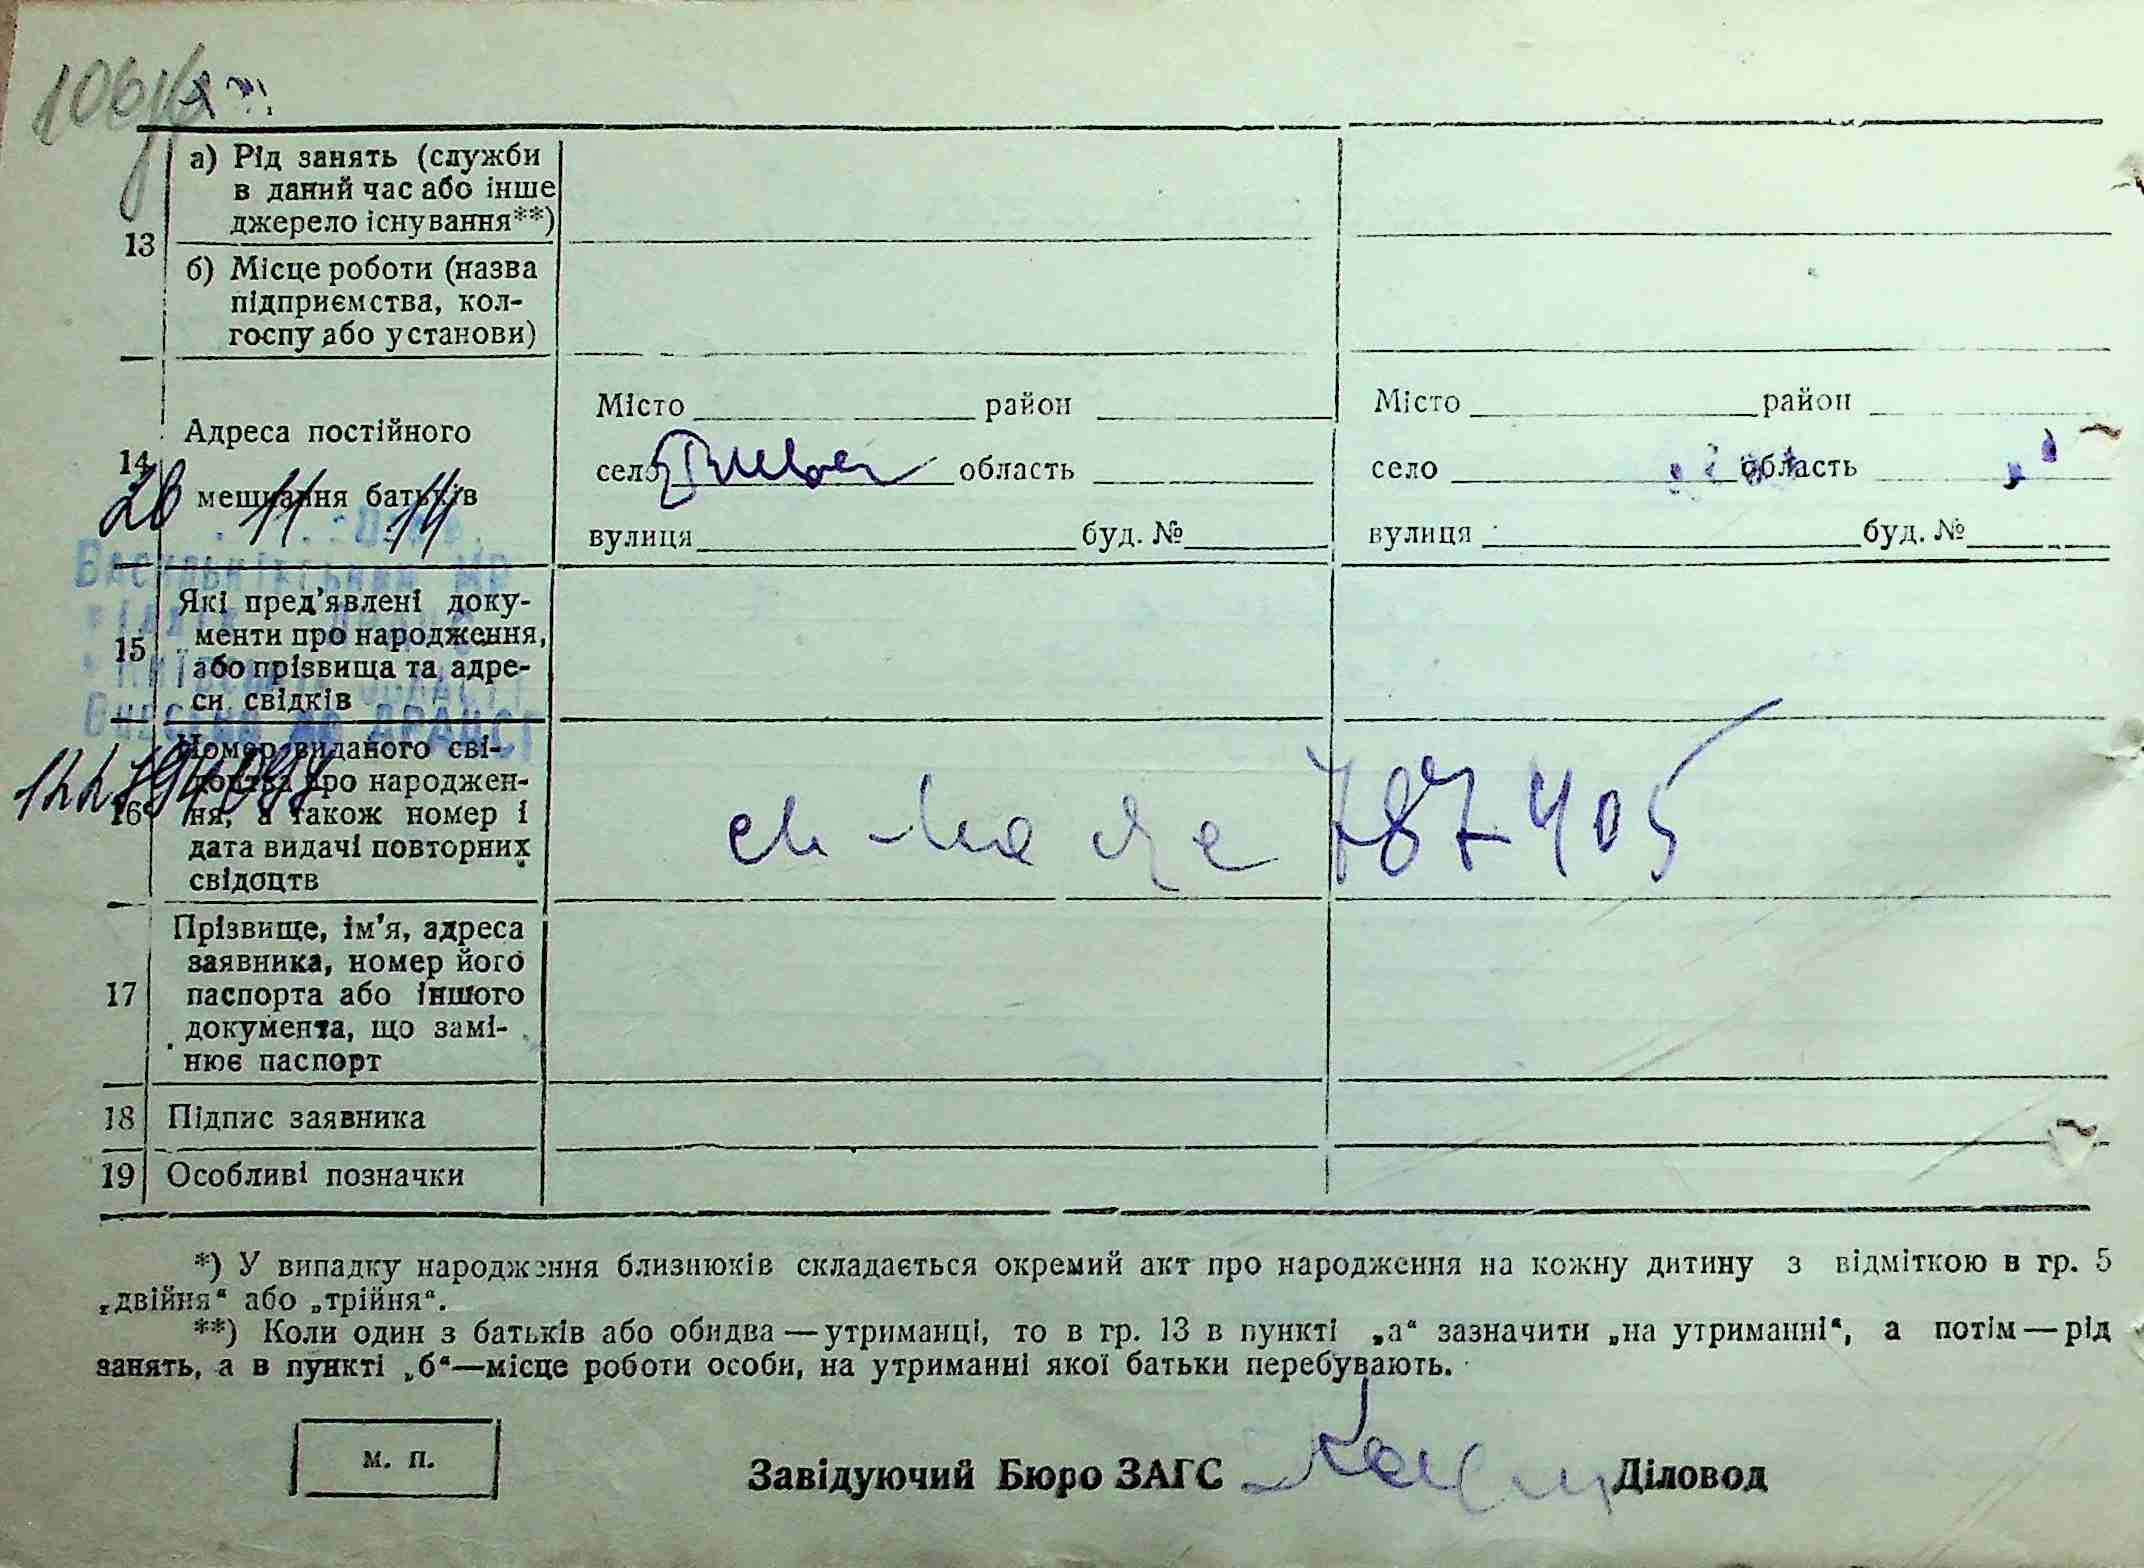 13
а) Рід занять (служби
в даний час або інше
джерело існування**)
б) Місце роботи (назва
підприємства, кол-
госпу або установи)
14
Адреса постійного
мешкання батьків
Місто район
село область
вулиця буд. №
Місто район
село область
вулиця буд. №
20 11 11
15
Які пред'явлені доку-
менти про народження,
або прізвища та адре-
си свідків
16
Номер виданого сві-
доцтва про народжен-
ня, а також номер і
дата видачі повторних
свідоцтв
787405
17
Прізвище, ім'я, адреса
заявника, номер його
паспорта або іншого
документа, що замі-
нює паспорт
18 Підпис заявника
19 Особливі позначки
*) У випадку народження близнюків складається окремий акт про народження на кожну дитину з відміткою в гр. 5
„двійня“ або „трійня“.
**) Коли один з батьків або обидва — утриманці, то в гр. 13 в пункті „а“ зазначити „на утриманні“, а потім — рід
занять, а в пункті „б“—місце роботи особи, на утриманні якої батьки перебувають.
м. п.
Завідуючий Бюро ЗАГС Діловод